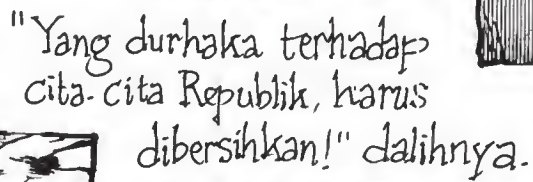 "Yang durhaka terhadap
cita-cita Republik, harus
dibersihkan!" dalihnya.